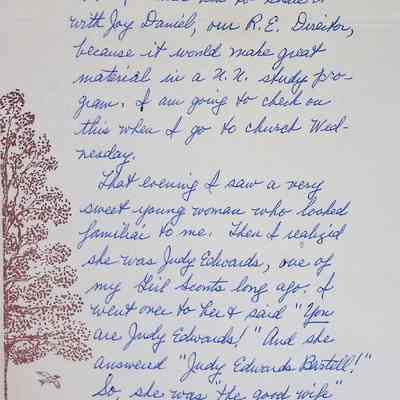 with Joy Daniel, our R.E. Director,
because it would make great
material in a U.U. study pro-
gram. I am going to check on
this when I go to church Wed-
nesday.
That evening I saw a very
sweet young woman who looked
familiar to me. Then I realized
she was Judy Edwards, one of
my Girl Scouts long ago. I
went over to her & said "You
are Judy Edwards!" And she
answered "Judy Edwards Bartell!"
So, she was "the good wife"